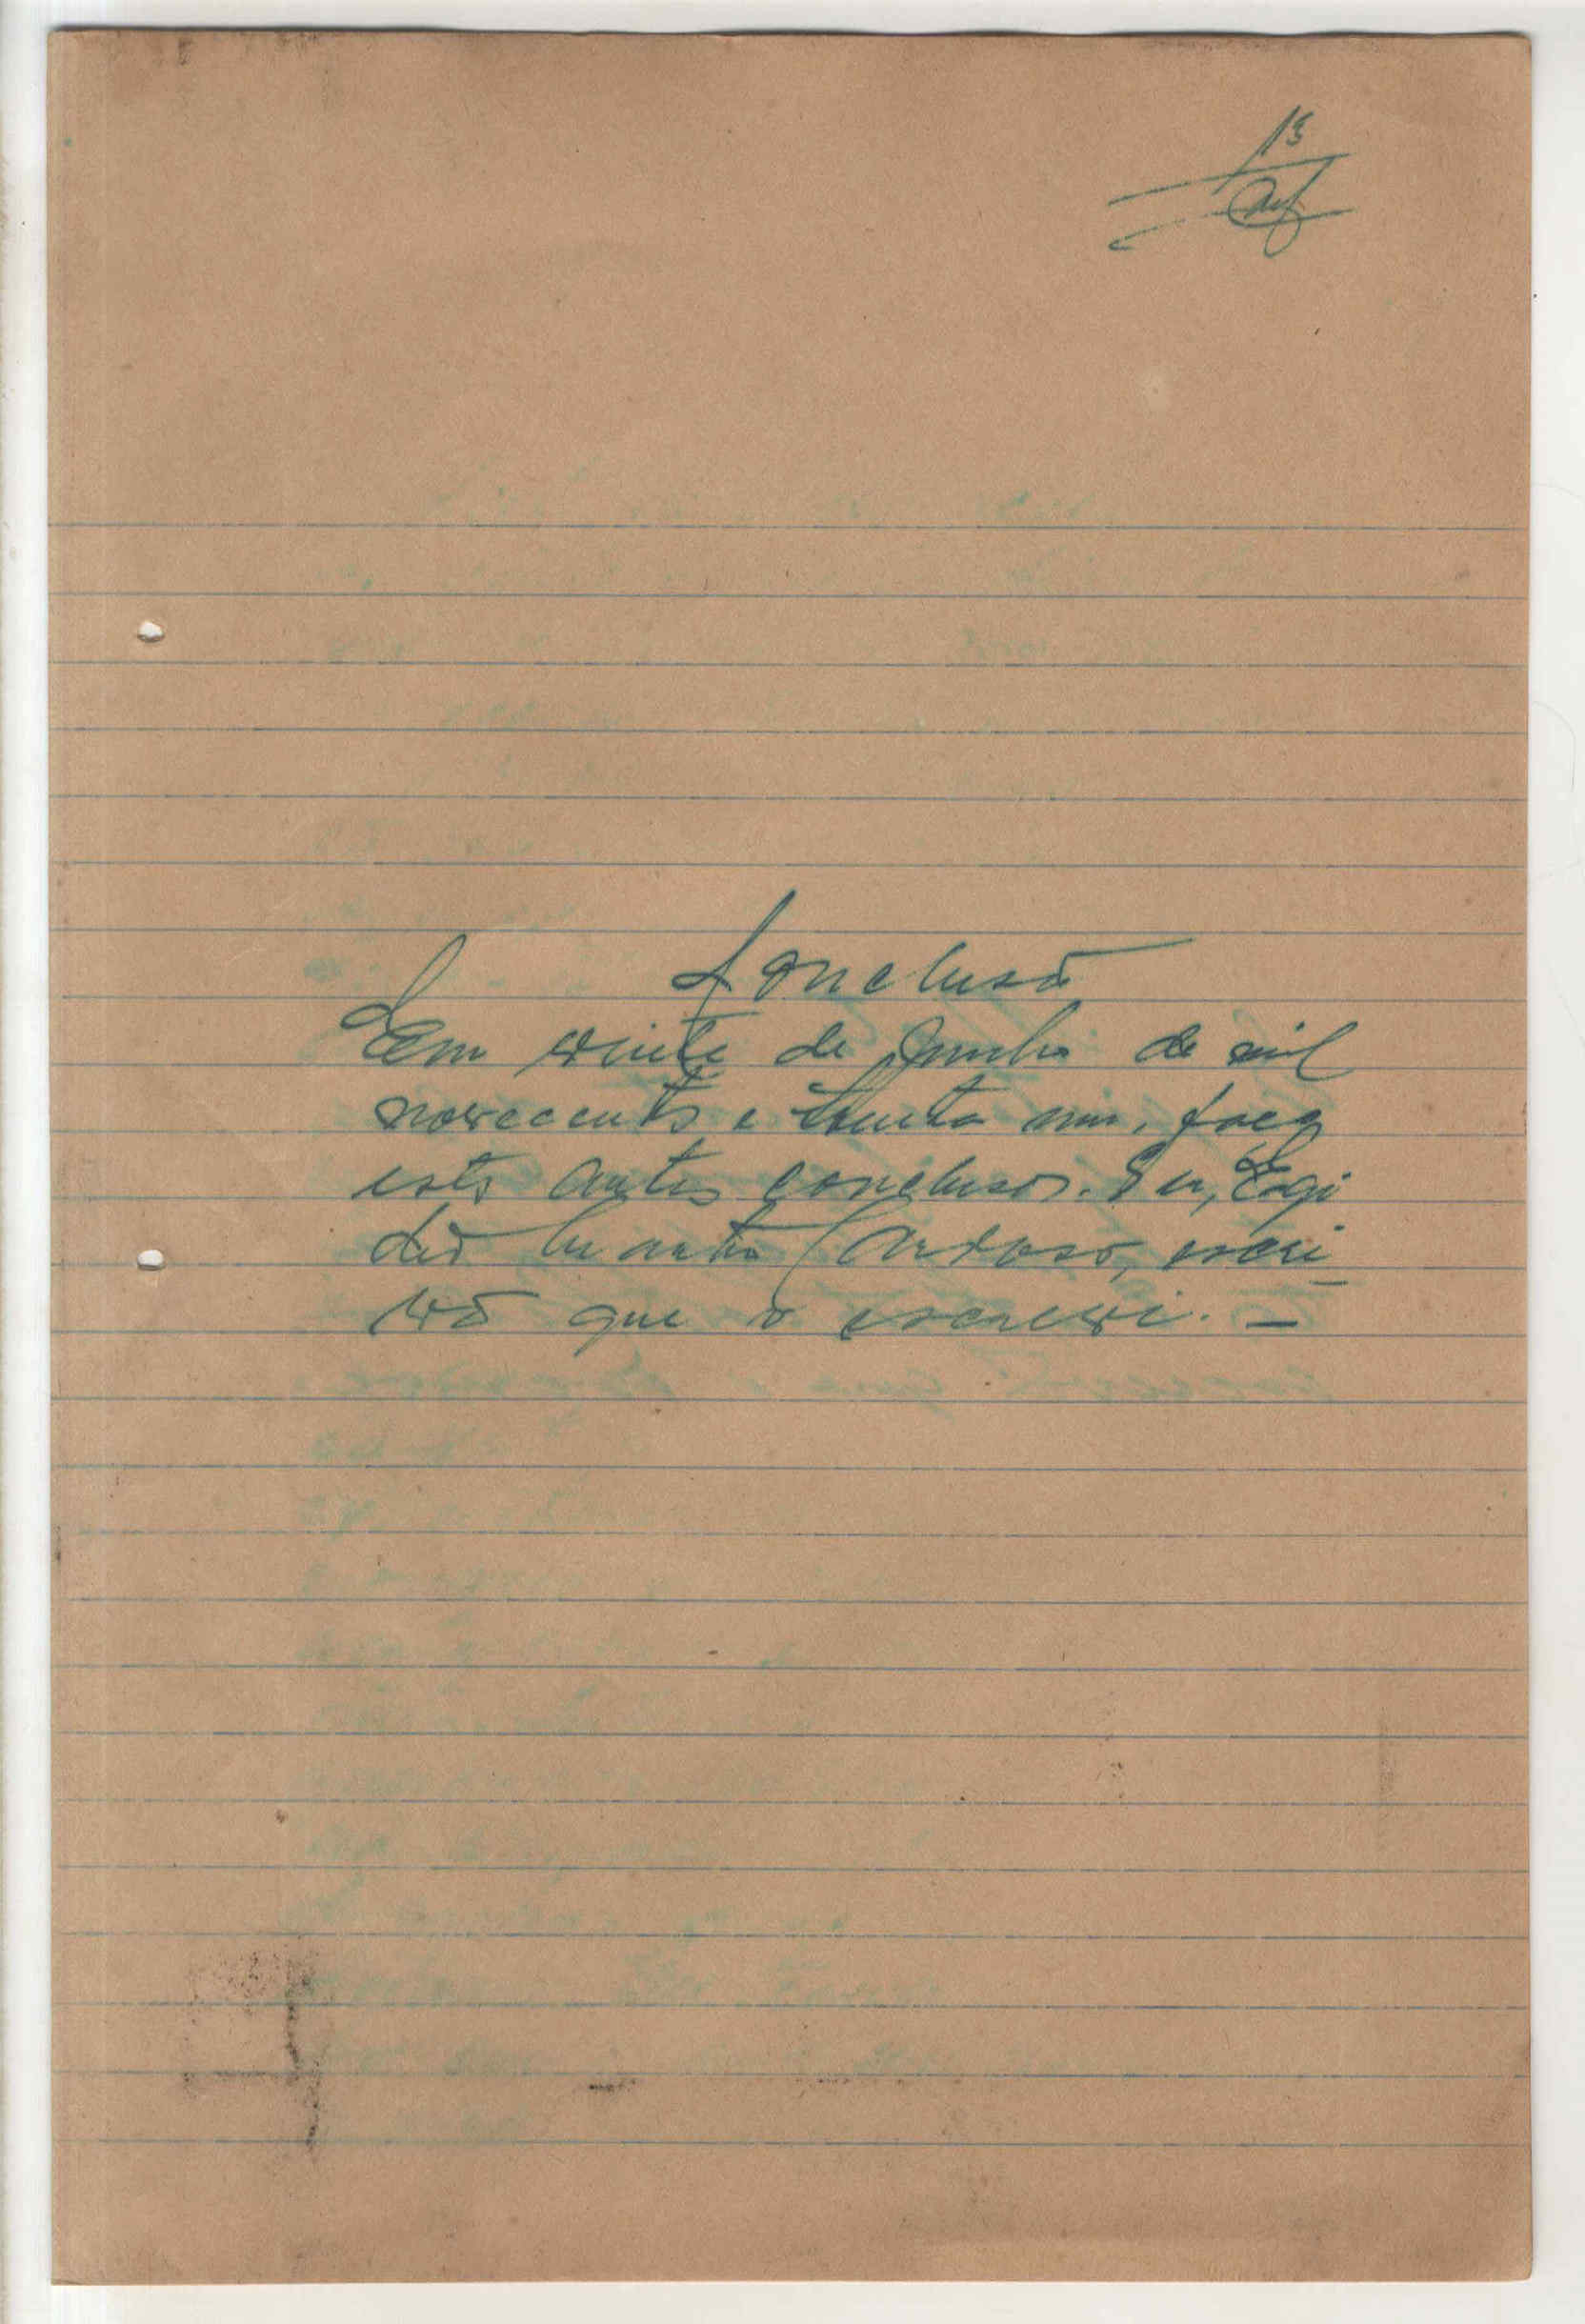 13
Conclusão
Em vinte de Junho de mil
novecentos e trinta um, faço
estes autos conclusos. Eu, Egi
dio Cardoso, escri
vão que o escrevi. —